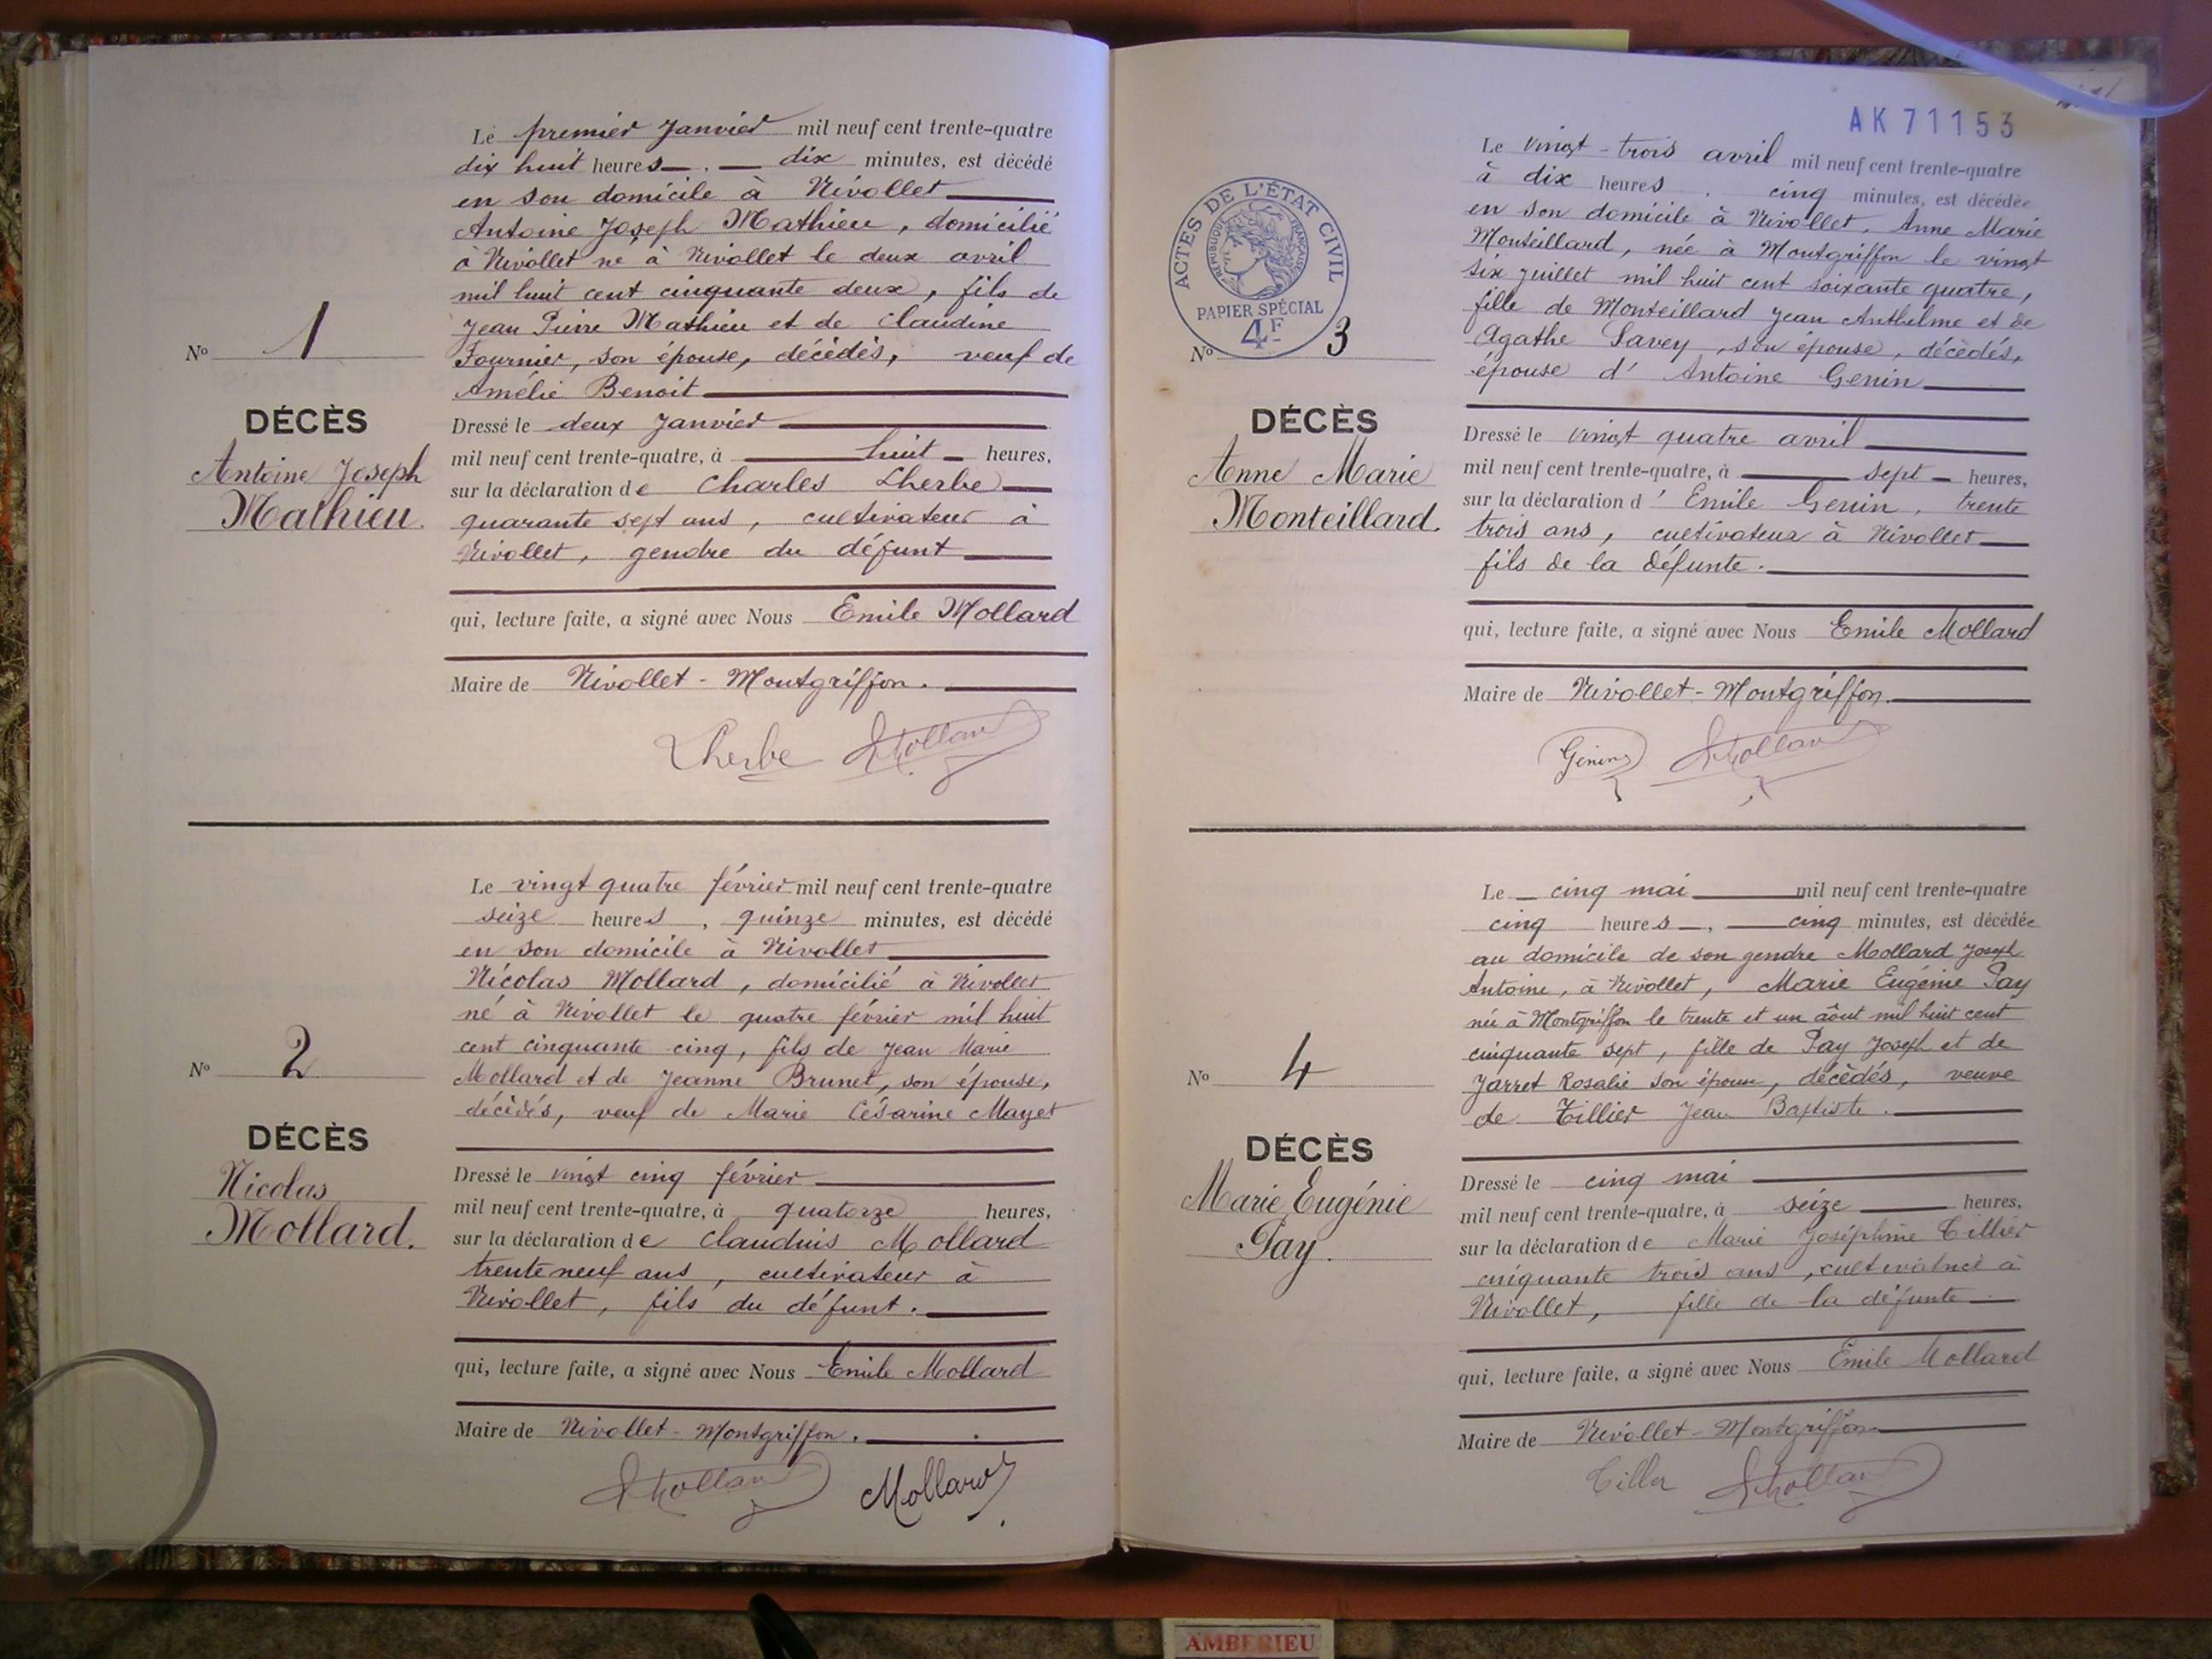 Le premier Janvier mil neuf cent trente-quatre
dix huit heures, dix minutes, est décédé
en son domicile à Nivollet
Antoine Joseph Mathieu, domicilié
à Nivollet né à Nivollet le deux avril
mil huit cent cinquante deux, fils de
Jean Pierre Mathieu et de Claudine
Fournier, son épouse, décédés, veuf de
Amélie Benoit
Nº 1
DÉCÈS
Antoine Joseph
Mathieu.
Dressé le deux Janvier
mil neuf cent trente-quatre, à huit heures,
sur la déclaration de Charles Lherbe
quarante sept ans, cultivateur à
Nivollet, gendre du défunt
qui, lecture faite, a signé avec Nous Emile Mollard
Maire de Nivollet-Montgriffon.
Lherbe Mollard
Le vingt quatre février mil neuf cent trente-quatre
seize heures, quinze minutes, est décédé
en son domicile à Nivollet
Nicolas Mollard, domicilié à Nivollet
né à Nivollet le quatre février mil huit
cent cinquante cinq, fils de Jean Marie
Mollard et de Jeanne Brunet, son épouse,
décédés, veuf de Marie Césarine Mayet
Nº 2
DÉCÈS
Nicolas
Mollard.
Dressé le vingt cinq février
mil neuf cent trente-quatre, à quatorze heures,
sur la déclaration de Claudius Mollard
trente neuf ans, cultivateur à
Nivollet, fils du défunt.
qui, lecture faite, a signé avec Nous Emile Mollard
Maire de Nivollet-Montgriffon.
Mollard Mollard
AK 71153
Le vingt-trois avril mil neuf cent trente-quatre
à dix heures, cinq minutes, est décédée
en son domicile à Nivollet, Anne Marie
Monteillard, née à Montgriffon le vingt
six juillet mil huit cent soixante quatre,
fille de Monteillard Jean Anthelme et de
Agathe Savey, son épouse, décédés,
épouse d'Antoine Genin
ACTES DE L'ÉTAT CIVIL
REPUBLIQUE FRANÇAISE
PAPIER SPÉCIAL
4F
Nº 3
DÉCÈS
Anne Marie
Monteillard.
Dressé le vingt quatre avril
mil neuf cent trente-quatre, à sept heures,
sur la déclaration d'Emile Genin, trente
trois ans, cultivateur à Nivollet
fils de la défunte.
qui, lecture faite, a signé avec Nous Emile Mollard
Maire de Nivollet-Montgriffon.
Genin Mollard
Le cinq mai mil neuf cent trente-quatre
cinq heures, cinq minutes, est décédée
au domicile de son gendre Mollard Joseph
Antoine, à Nivollet, Marie Eugénie Pay
née à Montgriffon le trente et un août mil huit cent
cinquante sept, fille de Pay Joseph et de
Jarret Rosalie son épouse, décédés, veuve
de Tillier Jean Baptiste.
Nº 4
DÉCÈS
Marie Eugénie
Pay.
Dressé le cinq mai
mil neuf cent trente-quatre, à seize heures,
sur la déclaration de Marie Joséphine Tillier
cinquante trois ans, cultivatrice à
Nivollet, fille de la défunte
qui, lecture faite, a signé avec Nous Emile Mollard
Maire de Nivollet-Montgriffon
Tiller Mollard
AMBERIEU